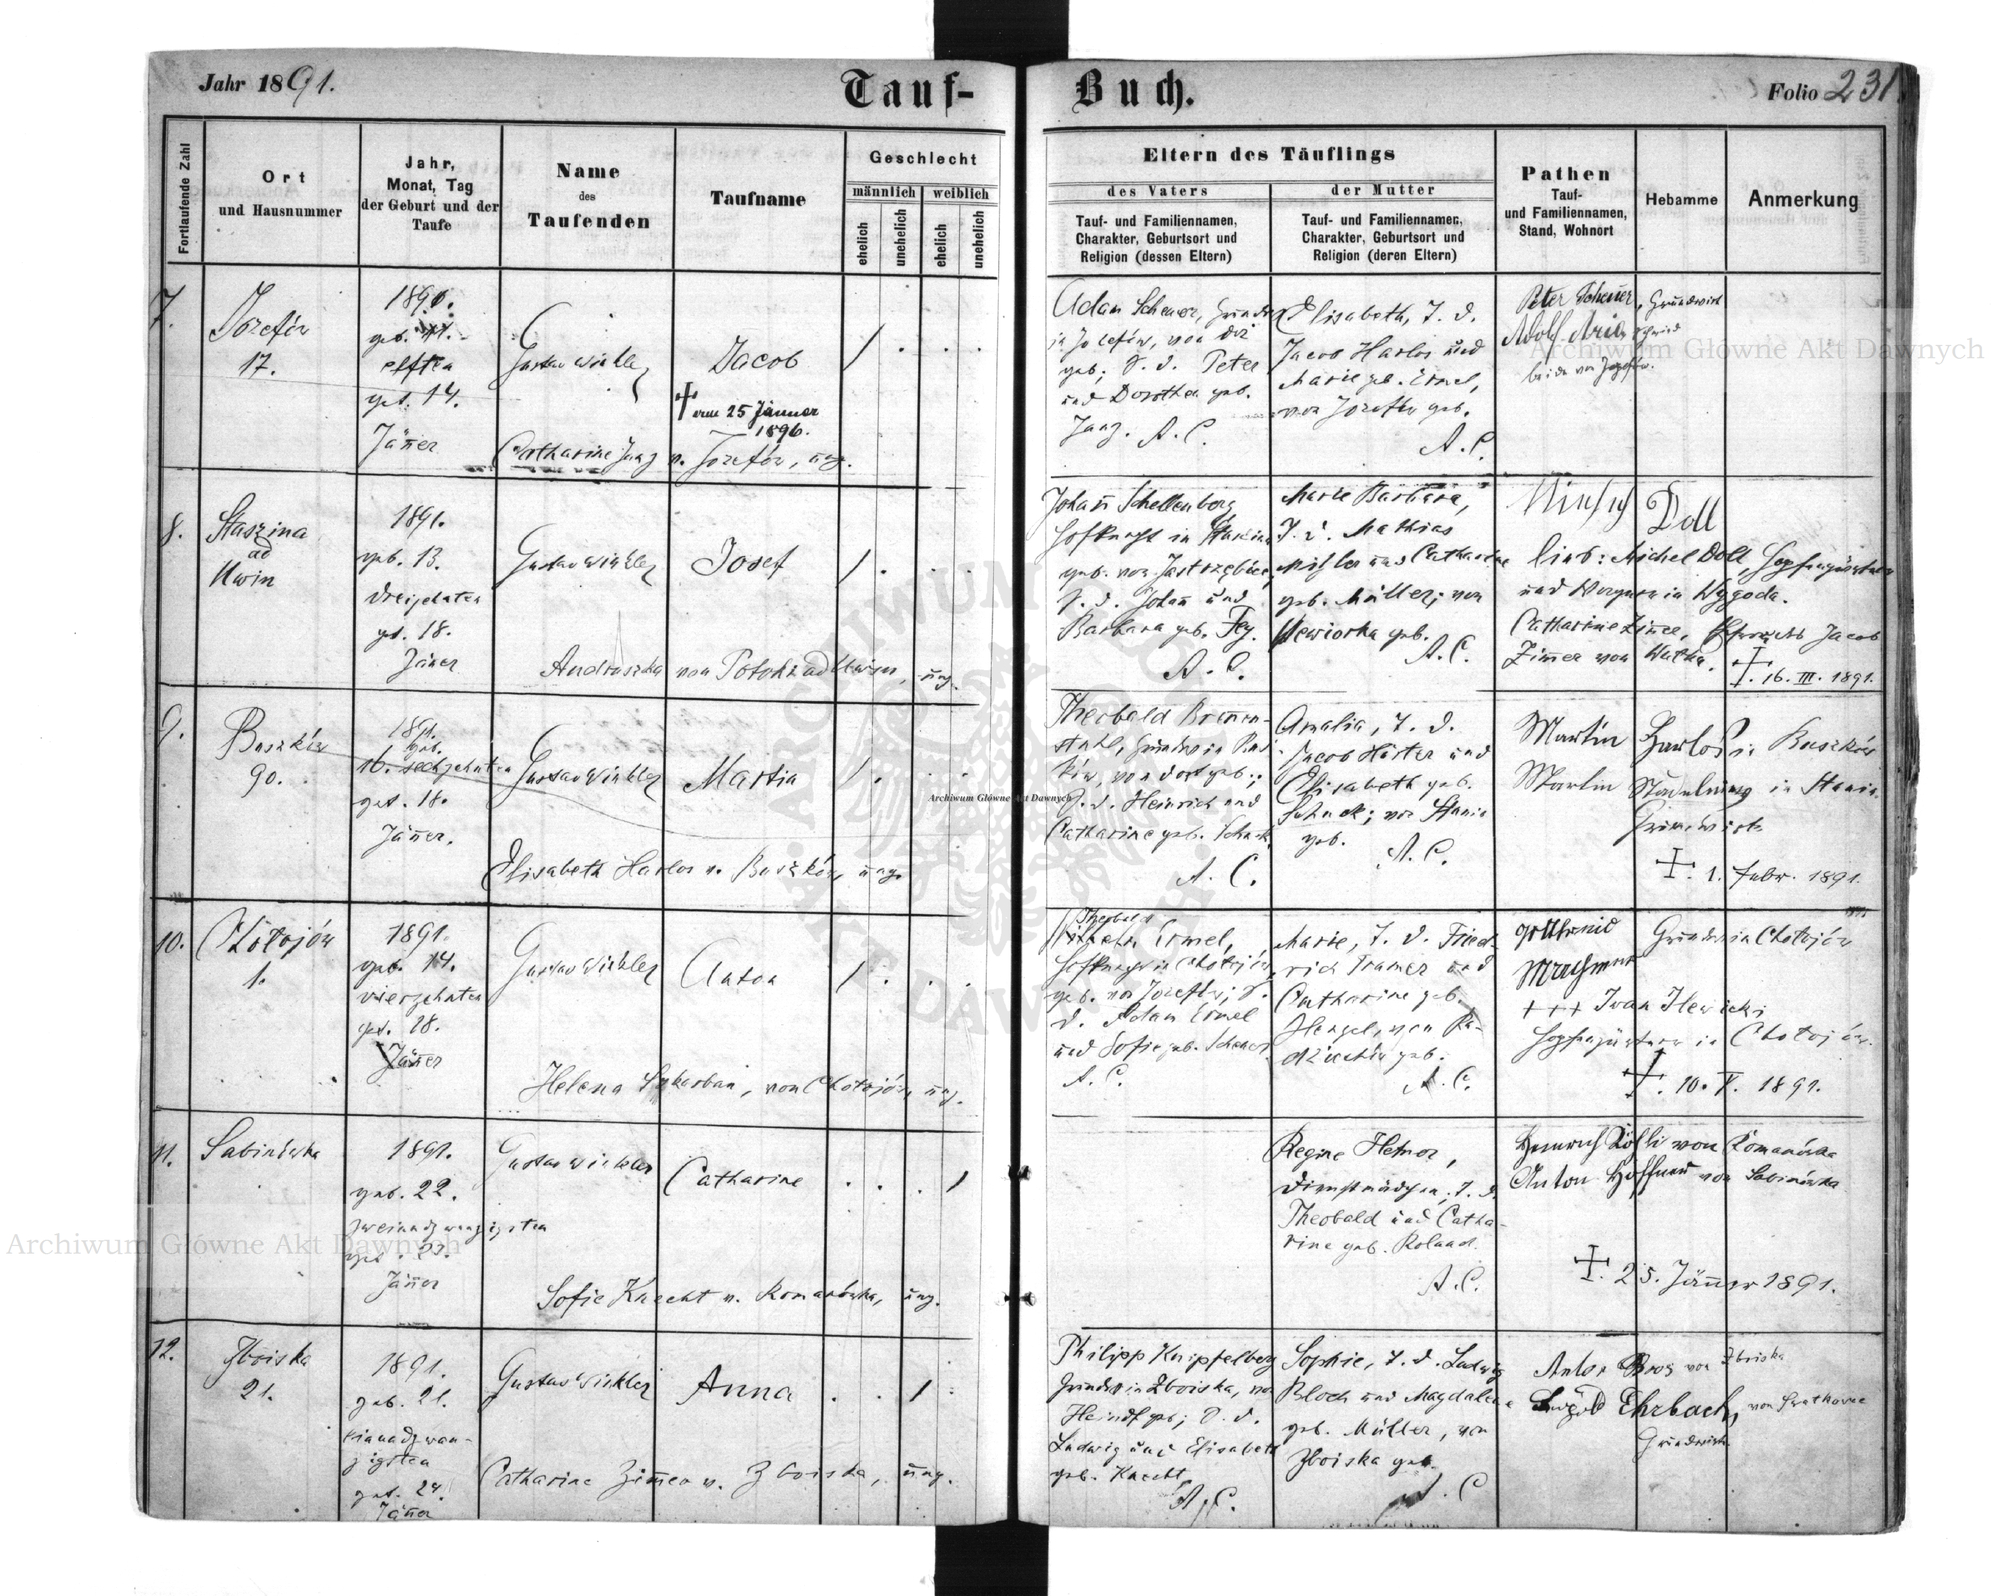 Jahr 1891.
Tauf-
Buch.
Folio 231
Fortlaufende Zahl
Ort
und Hausnummer
Jahr,
Monat, Tag
der Geburt und der
Taufe
Name
des
Taufenden
Taufname
Geschlecht
männlich
weiblich
ehelich
unehelich
ehelich
unehelich
Eltern des Täuflings
des Vaters
der Mutter
Tauf- und Familiennamen,
Charakter, Geburtsort und
Religion (dessen Eltern)
Tauf- und Familiennamen,
Charakter, Geburtsort und
Religion (deren Eltern)
Pathen
Tauf-
und Familiennamen,
Stand, Wohnort
Hebamme
Anmerkung
7.
Józefów
17.
geb.
elften
get. 14.
Jäñer
Gustav Winkler
Jacob
† am 25 Jänner
1896.
Catharine Jung v. Józefów, ung.
Adam Scheuer, Grundw.
in Józefów, von dort
geb., S. d. Peter
und Dorothea geb.
Jung. A. C.
Elisabeth, T. d.
Jacob Harlos und
Marie geb. Ermel,
von Józefów geb.
A. C.
Peter Scheuer, Grundwirt
Adolf
beide von Józefów.
8.
Staszina
ad
Uwin
1891.
geb. 13.
dreizehnten
get. 18.
Jäner
Gustav Winkler
Josef
Andruszka von Potoki ad Uwin, ung.
Johañ Schellenberg
Hofknecht in
geb. von Jastrzębica,
S. d. Johañ und
Barbara geb. Fey.
A. C.
Marie Barbara,
T. d. Mathias
und Catharine
geb. Müller; von
Wewiorka geb.
A. C.
Doll
Michel Doll, Hopfengärtner
und in Wygoda.
Catharine Zimer, Jacob
Zimer von
† 16. III. 1891.
9.
Buszków
90.
1891.
geb.
16. sechzehnten
get. 18.
Jäñer.
Gustav Winkler
Martin
Elisabeth Harlos v. Buszków, ung.
Theobald Breñen-
stuhl, Grundw. in Busz-
ków, von dort geb.;
S. d. Heinrich und
Catharine geb. Schuck.
A. C.
Amalia, T. d.
Jacob Härter und
Elisabeth geb.
Schuck; von Stanin
geb. A. C.
Martin Harlos in Buszków
Martin in Stanin.
Grundwirte
† 1. Febr. 1891.
10.
Chołojów
1.
1891.
geb. 14.
vierzehnten
get. 18.
Jäñer
Gustav Winkler
Anton
Helena von Chołojów, ung.
Theobald
Ermel,
Hofknecht in Chołojów
geb. von Józefów; S.
d. Adam Ermel
und Sofie geb. Scheuer.
A. C.
Marie, T. d. Fried-
rich Kramer und
Catharine geb.
Hengel, von Ra-
dziechów geb.
A. C.
Gottfried Grundw. in Chołojów
+++ Iwan Ilewicki
Hopfengärtner in Chołojów.
† 10. V. 1891.
11.
Sabinówka
1891.
geb. 22.
zweiundzwanzigsten
get. 23.
Jäñer
Gustav Winkler
Catharine
Sofie Knecht v. Romanówka, ung.
Regine Hemer,
Dienstmädchen, T. d.
Theobald und Catha-
rine geb. Roland.
A. C.
Heinrich von Romanówka
Anton Hoffmañ von Sabinówka
† 25. Jäñer 1891.
12.
Zboiska
21.
1891.
geb. 21.
einundzwan-
zigsten
get. 24.
Jäñer
Gustav Winkler
Anna
Catharine Zimer v. Zboiska, ung.
Philipp Knipfelberg
Grundw. in Zboiska, von
Heindf geb; S. d.
Ludwig und Elisabeth
geb. Knecht
A. C.
Sophie, T. d. Ludwig
Bloch und Magdalene
geb. Müller, von
Zboiska geb.
A. C
Anton Bros von Zboiska
Leopold Ehrbach, von
Grundwirte
Archiwum Główne Akt Dawnych
Archiwum Główne Akt Dawnych
Archiwum Główne Akt Dawnych